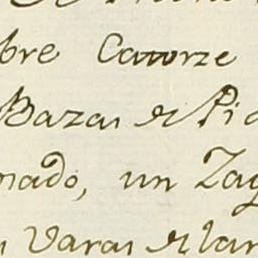 bre Catorze
Bazas de Pi
nado, un Zag
Varas de lar